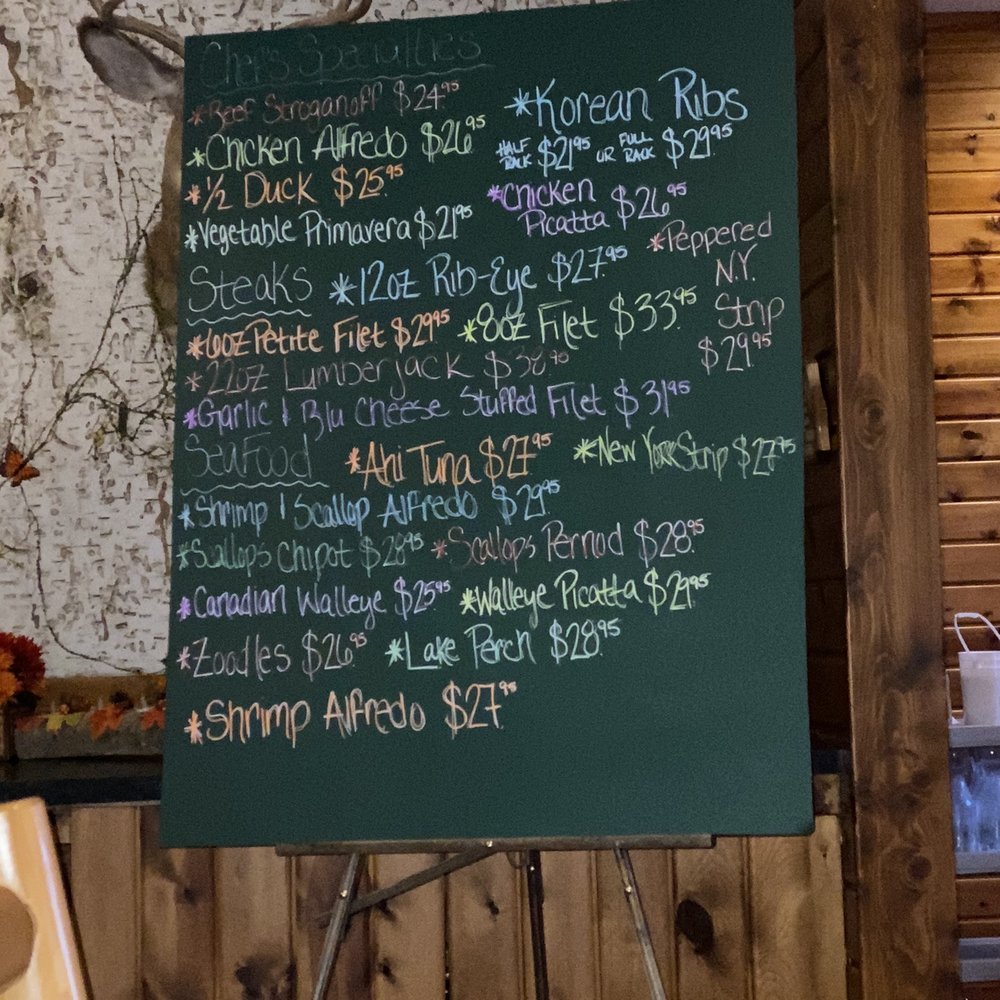 Chef's Specialties
*Beef Stroganoff $24.95
*Chicken Alfredo $26.95
*1/2 Duck $25.95
*Vegetable Primavera $21.95
*Korean Ribs
HALF RACK $21.95 OR FULL RACK $29.95
*Chicken
Picatta $26.95
Steaks
*12oz Rib-Eye $27.95
*Peppered
N.Y.
Strip
$29.95
*6oz Petite Filet $29.95
*8oz Filet $33.95
*22oz Lumberjack $38.95
*Garlic & Blu Cheese Stuffed Filet $31.95
*New York Strip $27.95
SeaFood
*Ahi Tuna $27.95
*Shrimp & Scallop Alfredo $29.95
*Scallops Chipot $28.95
*Scallops Pernod $28.95
*Canadian Walleye $25.95
*Walleye Picatta $29.95
*Zoodles $26.95
*Lake Perch $28.95
*Shrimp Alfredo $27.95